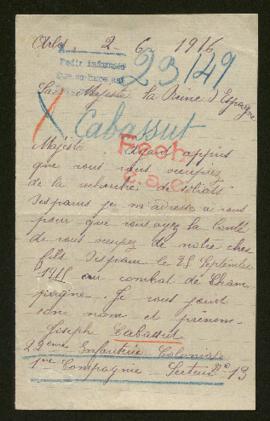 Arles, 2 - 6 1916
Pedir informes
23149
Sa Majesté la Reine d'Espagne
Cabassut
Majesté. Ayant appris
Fech
que vous vous occupez
de la recherche de soldats
disparus je m'adresse à vous
pour que vous ayez la bonté
de vous occuper de notre cher
fils disparu le 25 Septembre
1915 au combat de Cham
pagne. Je vous
son nom et prénom.
Joseph Cabassut
22ème Infanterie Coloniale
1ère Compagnie Secteur No 13